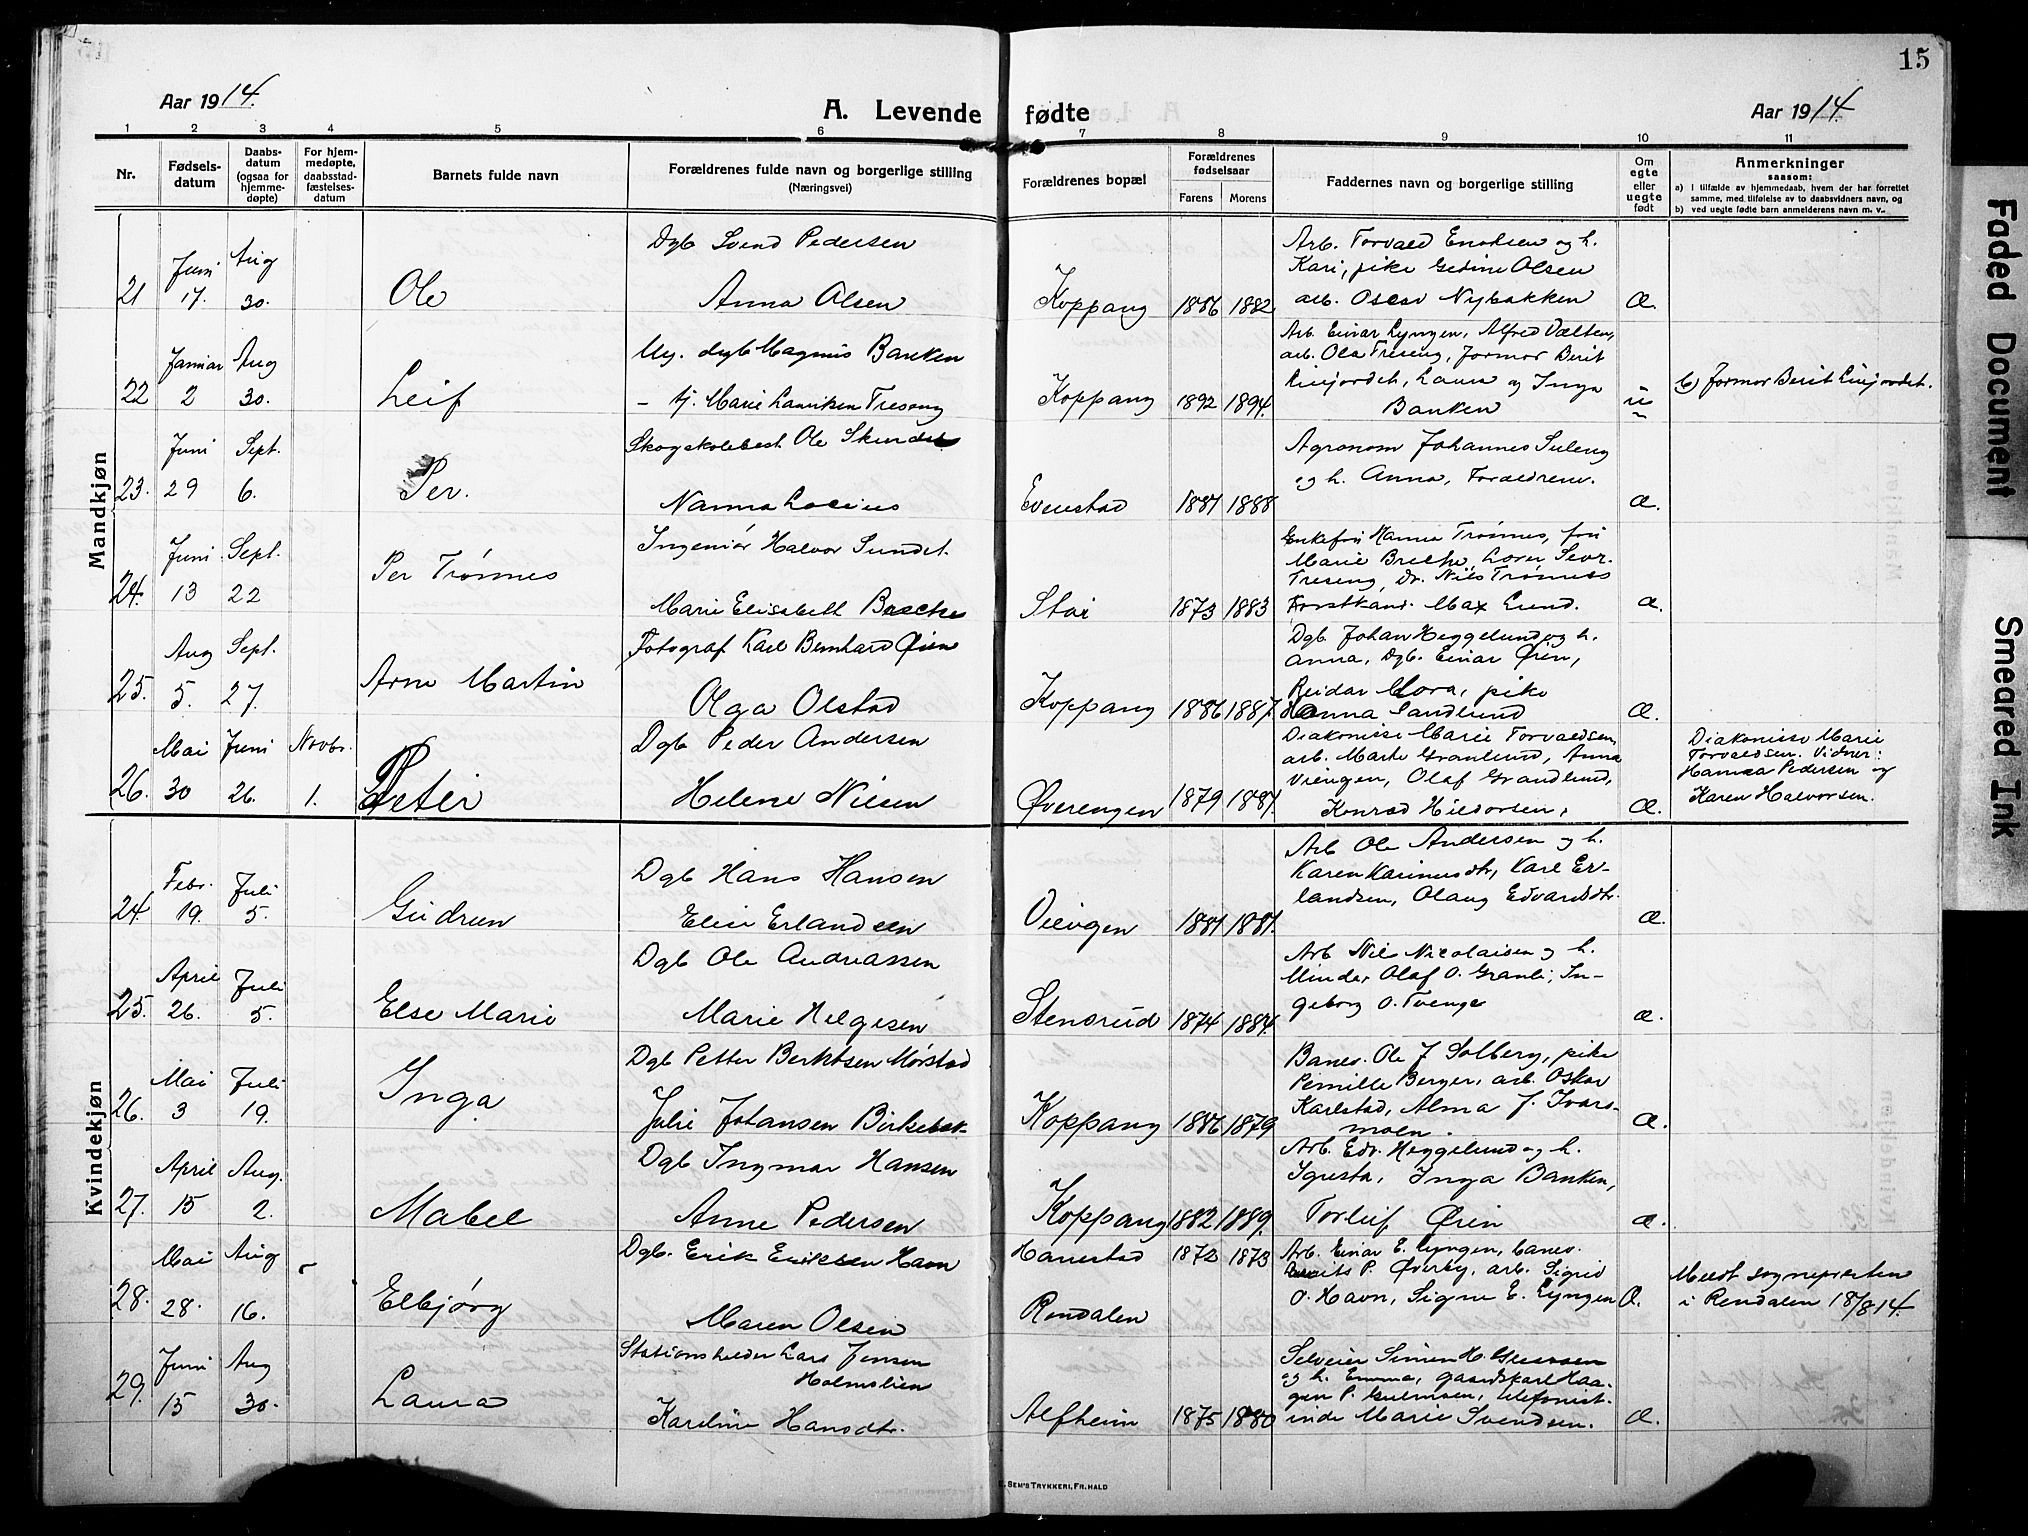 15
Aar 1914.
A. Levende fødte
Aar 1914.
1 2 3 4 5 6 7 8 9 10 11
Nr.
Fødsels-
datum
Daabs-
datum
(ogsaa for
hjemme-
døpte)
For hjem-
medøpte,
daabsstad-
fæstelses-
datum
Barnets fulde navn
Forældrenes fulde navn og borgerlige stilling
(Næringsvei)
Forældrenes bopæl
Forældrenes
fødselsaar
Farens Morens
Faddernes navn og borgerlige stilling
Om
egte
eller
uegte
født
Anmerkninger
saasom:
a) I tilfælde av hjemmedaab, hvem der har forrettet
samme, med tilføielse av to daabsvidners navn, og
b) ved uegte fødte barn anmelderens navn m. v.
Mandkjøn
21 Juni 17. Aug 30. Ole
Dgb Svend Pedersen
Anna Olsen
Koppang 1886 1882
Arb. Torvald Enoksen og h.
Kari, pike Gedine Olsen
arb. Oscar Nybakken
Æ.
22 Januar 2 Aug 30. Leif
Ug. dgb Magnus Banken
- tj. Marie Lauritsen Treseng
Koppang 1892 1894.
Arb. Einar Lyngen, Alfred Vælten,
arb. Ola Treseng, Jormor Berit
Liejordet, Laura og Inga
Banken
u
b) Jormor Berit Liejordet.
23. Juni 29 Sept. 6. Per.
Skogskolebest Ole Skundet
Nanna
Evenstad 1881 1888
Agronom Johannes Suleng
og h. Anna, Forældrene.
Æ.
24. Juni 13 Sept. 22 Per Trønnes
Ingeniør Halvor Sundt.
Marie Elisabeth
Stai 1873 1883
Enkefru Hanna Trønnes, fru
Marie
Treseng, Dr. Nils Trønnes
Forstkand. Max Lund.
Æ.
25. Aug 5. Sept. 27. Arne Martin
Fotograf Karl Bernhard Øien
Olga Olstad
Koppang 1886 1887.
Dgb. Johan Heggelund og h.
Anna, Dgb. Einar Øien,
Reidar Mora, pike
Hanna Sandlund
Æ.
26. Mai 30 Juni 26. Novbr. 1. Peter
Dgb Peder Andersen
Helene Nilsen
Øverengen 1879 1881.
Diakonisse Marie Torvaldsen,
arb. Marte Granlund, Anna
Viengen, Olaf Grandlund,
Konrad Hildorsen,
Æ.
Diakonisse Marie
Torvaldsen. Vidner:
Hanna Pedersen og
Karen Halvorsen.
Kvindekjøn
24. Febr. 19. Juli 5. Gudrun
Dgb Hans Hansen
Elise Erlandsen
Viengen 1881 1881.
Arb Ole Andersen og h.
Karen Karinusdtr, Karl Er-
landsen, Olaug Edvardsdtr.
Æ.
25. April 26. Juli 5. Else Marie
Dgb Ole Andreassen
Marie Helgesen
Stensrud 1874 1884.
Arb Nils Nicolaisen og h.
Minda, Olaf O. Granli, In-
geborg O. Tvenge
Æ.
26. Mai 3 Juli 19. Inga
Dgb Petter Berntsen Mørstad
Julie Johansen
Koppang 1886 1879
Banev. Ole J Solberg, pike
Pernille Berger, arb. Oskar
Karlstad, Alma J. Ivars-
moen.
Æ.
27. April 15 Aug. 2. Mabel
Dgb Ingmar Hansen
Anne Pedersen
Koppang 1882 1889.
Arb. Edv. Heggelund og h.
Igusta, Inga Banken,
Torleif Øien
Æ.
28. Mai 28. Aug 16. Elbjørg
Dgb. Erik Eriksen Havn
Maren Olsen
Hanestad 1872 1873
Rendalen
Arb. Einar E. Lyngen, banev.
P. Øverby, arb. Sigrid
O. Havn, Signe E. Lyngen
Æ.
Meldt sognepresten
i Rendalen 18/8 14.
29. Juni 15 Aug 30. Laura
Stationsholder Lars Jensen
Holmslien
Karoline Hansdtr.
Alfheim 1875 1880
Selveier Simen H.
og h. Emma, gaardskarl Haa-
gen P. telefonist-
inde Marie Svendsen.
Æ.
E. SEM'S TRYKKERI, FR. HALD
Faded Document
Smeared Ink